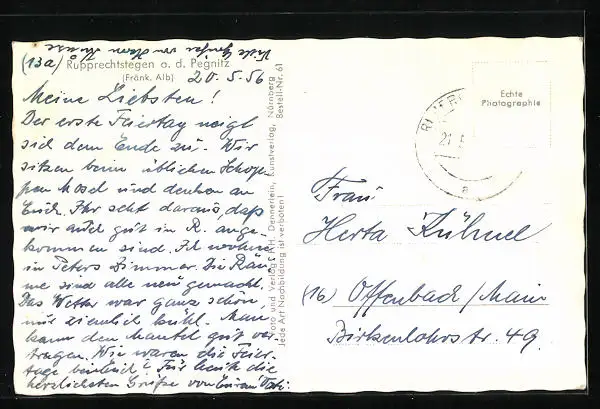 Viele Grüße von Herrn Krause
(13a) Rupprechtstegen a. d. Pegnitz
(Fränk. Alb) 20.5.56
Meine Liebsten!
Der erste Feiertag neigt
sich dem Ende zu. Wir
sitzen beim üblichen Schop-
pen Mosel und denken an
Euch. Ihr seht daraus, daß
wir auch gut in R. ange-
kommen sind. Ich wohne
in Peters Zimmer. Die Räu-
me sind alle neu gemacht.
Das Wetter war ganz schön,
nur ziemlich kühl. Man
kann den Mantel gut ver-
tragen. Wie waren die Feier-
tage bei Euch? Für heute die
herzlichsten Grüße von Eurem Vati.
Foto und Verlag: R.H. Dennerlein, Kunstverlag, Nürnberg
Jede Art Nachbildung ist verboten! Bestell-Nr. 61
Echte
Photographie
21.5
a
Frau
Herta Kühnel
(16) Offenbach/Main
Birkenlohrstr. 49.